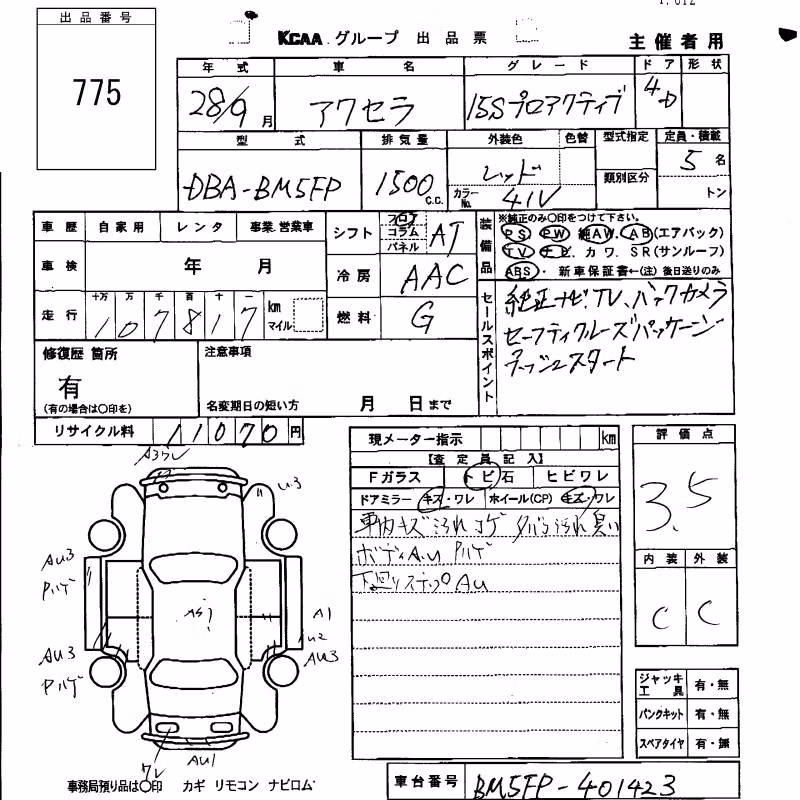 出品番号
775
KCAA グループ 出品票
主催者用
年式 車名 グレード ドア 形状
28/9月 アクセラ 15Sプロアクティブ 4D
型式 排気量 外装色 色替 型式指定 定員・積載
DBA-BM5FP 1500 C.C. レッド カラーNo. 41V 類別区分 5名 トン
車歴 自家用 レンタ 事業.営業車
シフト フロア コラム パネル AT
装備品 ※純正のみ〇印をつけて下さい。
PS PW 純AW. AB(エアバック)
TV ナビ. カワ. SR(サンルーフ)
ABS・ 新車保証書←(注)後日送りのみ
車検 年 月
冷房 AAC
走行 十万 万 千 百 十 一
107817 km マイル
燃料 G
セールスポイント
純正ナビ、TV、バックカメラ
セーフティクルーズパッケージ
プッシュスタート
修復歴 箇所
有
(有の場合は〇印を)
注意事項
名変期日の短い方 月 日まで
リサイクル料 11070円
現メーター指示 km
【査定員記入】
Fガラス トビ石 ヒビワレ
ドアミラー キズ・ワレ ホイール(CP) キズ・ワレ
車内キズ汚れコゲ タバコ汚れ臭い
ボディAu Pハゲ
下廻りステップAu
評価点
3.5
内装 外装
C C
U.3
AU3
Pハゲ
A1
U2
AU3
AU3
Pハゲ
AU1
ワレ
ジャッキ工具 有・無
パンクキット 有・無
スペアタイヤ 有・無
事務局預り品は〇印 カギ リモコン ナビロム
車台番号 BM5FP-401423